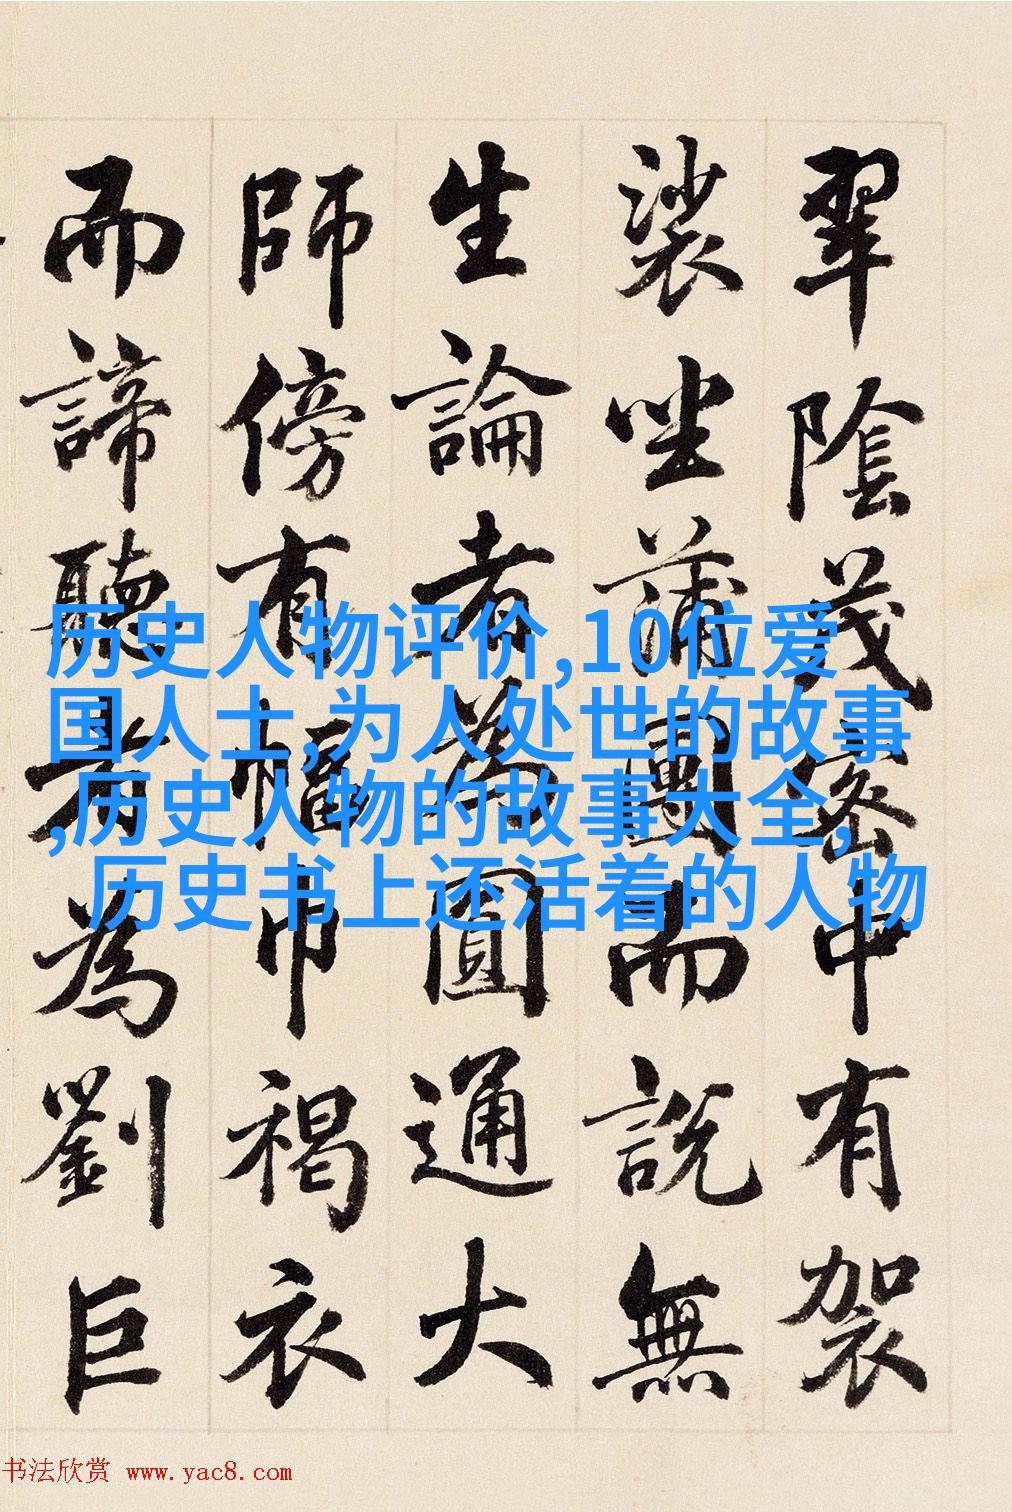 翠陰茂密中有袈
裟坐蒲團而說無
生論者為圓通大
師傍有幅巾褐衣
而諦聽者為劉巨
历史人物评价,10位爱
国人士,为人处世的故事
,历史人物的故事大全,
历史书上还活着的人物
书法欣赏 www.yac8.com